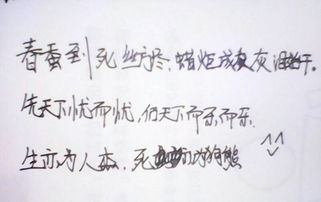 春蚕到死丝方尽,蜡炬成灰泪始干.
先天下忧而忧,后天下而乐而乐.
生亦为人杰,死亦为狗熊 ^^